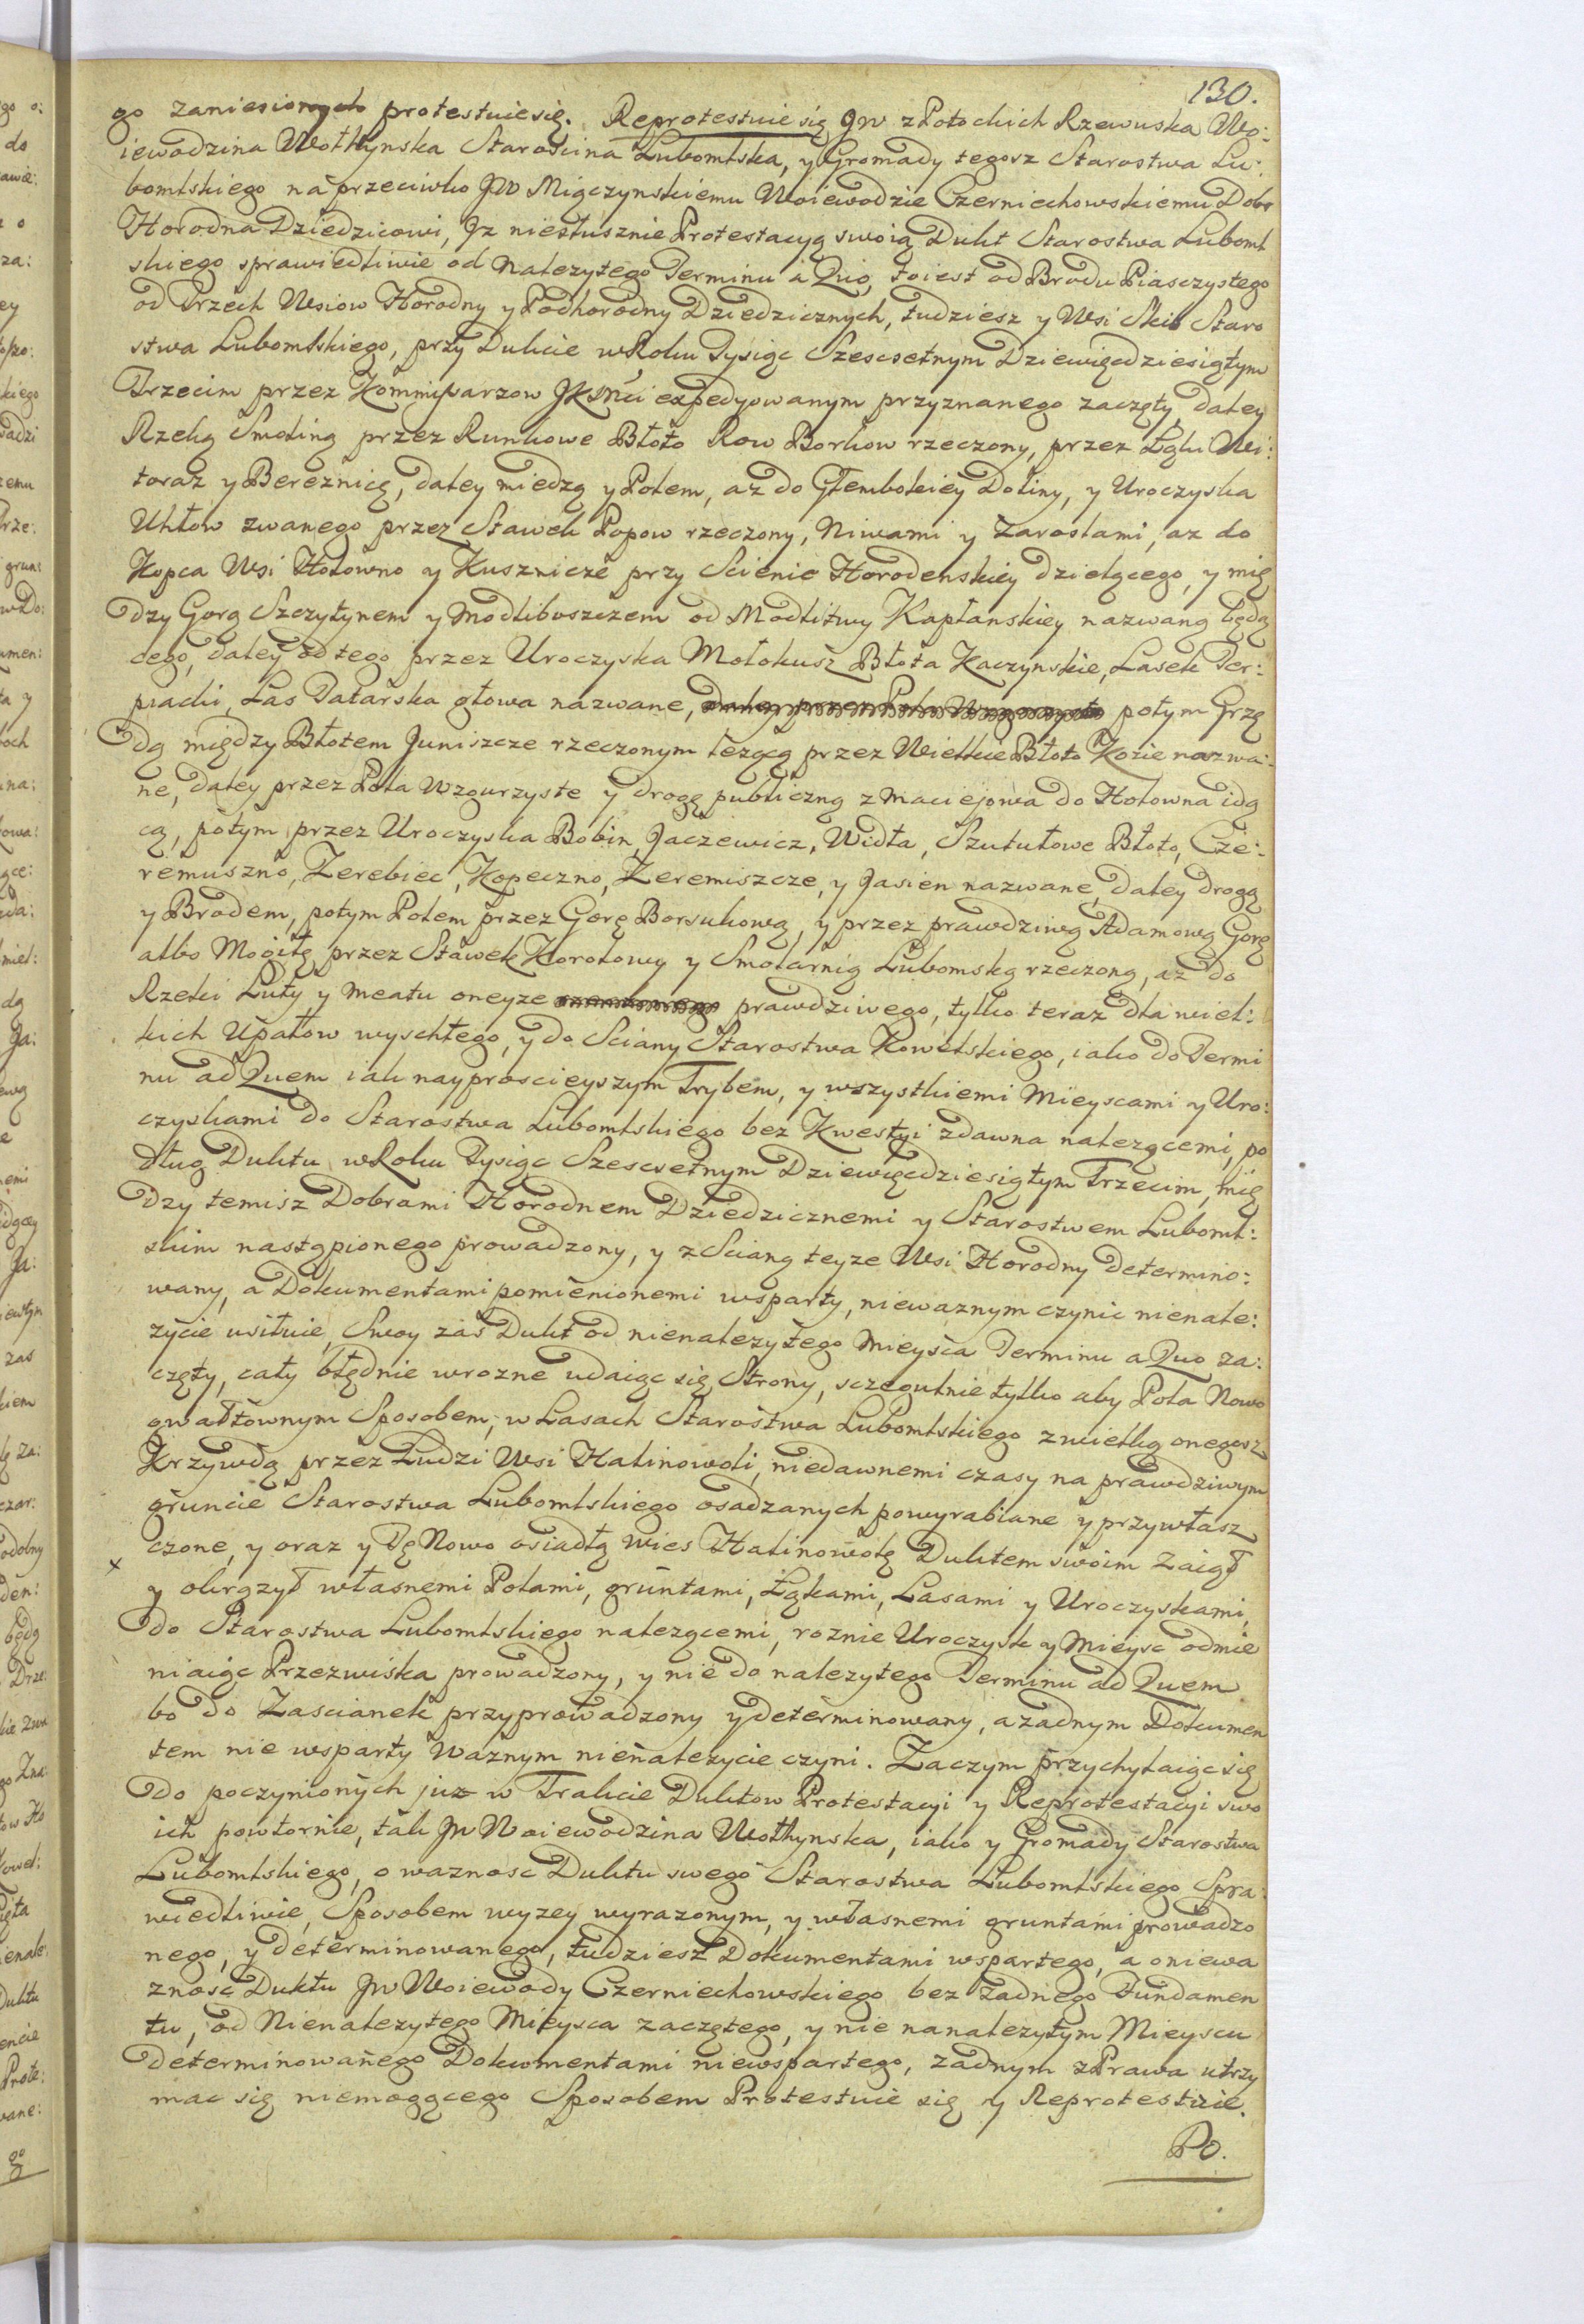 130.
go zaniesionych protestuie się. Reprotestuie się JW z Potockich Rzewuska Wo:
iewodzina Wołhynska Starościna Lubomlska, y Gromady tegosz Starostwa Lu:
bomlskiego naprzeciwko JW Miączynskiemu Woiewodzie Czerniechowskiemu Dobr
Horodna Dziedzicowi, Iz niesłusznie Protestacyą swoią Dukt Starostwa Luboml
skiego sprawiedliwie od Nalezytego Terminu a Quo, to iest od Brodu Piasczystego
od Trzech Wsiow Horodny y Podhorodny Dziedzicznych, tudziesz y Wsi Skib Staro
stwa Lubomlskiego, przy Dukcie w Roku Tysiąc Szescsetnym Dziewięcdziesiątym
Trzecim przez Kommissarzow JKMci expedyowanym przyznanego zaczęty, daley
Rzeką Smoling przez Runkowe Błoto Row Borkow rzeczony, przez Łąki Wi:
toraz y Bereznicę, daley miedzą y Polem, az do Głembokiey Doliny, y Uroczyska
Uhłow zwanego przez Stawek Popow rzeczony, Niwami y Zaroslami, az do
Kopca Wsi Hołowno y Kusznicze przy Scienie Horodenskiey dzielącego, y mię
dzy Gorą Szczytynem y Modliboszczem od Modlitwy Kapłanskiey nazwaną będą
cego, daley od tego przez Uroczyska Mołokusz Błota Kaczynskie, Lasek Ter:
piacki, Las Tatarska głowa nazwane, potym Grzę
dą między Błotem Juniszcze rzeczonym lezącą przez Wielkie Błoto Kozie nazwa:
ne, daley przez Pola Wzgurzyste y drogę publiczną z Maciejowa do Hołowna idą
cą, potym przez Uroczyska Bobin, Jaczewicz, Widła, Szutułowe Błoto, Cze:
remuszno, Zerebiec, Kopeczno, Zeremiszcze, y Jasien nazwane, daley drogą
y Brodem, potym Polem przez Gorę Borsukową, y przez prawdziwą Adamową Gorę
albo Mogiłę przez Stawek Korołowy y Smolarnią Lubomską rzeczoną, az do
Rzeki Luty y Meatu oneyze prawdziwego, tylko teraz dla wiel:
kich Upałow wyschłego, y do Sciany Starostwa Kowelskiego, iako do Termi
nu ad Quem iak nayprosciejszym Trybem, y wszystkiemi Mieyscami y Uro:
czyskami do Starostwa Lubomlskiego bez Kwestyi zdawna nalezącemi, po
dług Duktu w Roku Tysiąc Szescsetnym Dziewięcdziesiątym Trzecim, mię
dzy temisz Dobrami Horodnem Dziedzicznemi y Starostwem Luboml:
skim nastąpionego prowadzony, y z Scianą teyze Wsi Horodny determino:
wany, a Dokumentami pomienionemi wsparty, niewaznym czynic nienale:
zycie usiłuie, Swoy zas Dukt od nienalezytego Mieysca Terminu a Quo za:
częty, cały błędnie wrozne udaiąc się Strony, sczegulnie tylko aby Pola Nowo
gwałtownym Sposobem, w Lasach Starostwa Lubomlskiego zwielką onegosz
Krzywdą przez Ludzi Wsi Halinowoli, niedawnemi czasy na prawdziwym
gruncie Starostwa Lubomlskiego osadzanych powyrabiane y przywłasz
czone, y oraz y Tę Nowo osiadłą Wies Halinowolę Duktem swoim Zaiął
x
y okrązył własnemi Polami, gruntami, Łąkami, Lasami y Uroczyskami,
do Starostwa Lubomlskiego nalezącemi, roznie Uroczysk y Mieysc odmie
niaiąc Przezwiska prowadzony, y nie do nalezytego Terminu ad Quem
bo do Zascianek przyprowadzony y determinowany, a zadnym Dokumen
tem nie wsparty Waznym nienalezycie czyni. Zaczym przychylaiąc się
do poczynionych juz w Trakcie Duktow Protestacyi y Reprotestacyi swo
ich powtornie, tak JW Woiewodzina Wołhynska, iako y Gromady Starostwa
Lubomlskiego, o waznosc Duktu swego Starostwa Lubomlskiego Spra:
wiedliwie, Sposobem wyzey wyrazonym, y własnemi gruntami prowadzo
nego, y determinowanego, tudziesz Dokumentami wspartego, a oniewa
znosc Duktu JW Woiewody Czerniechowskiego bez zadnego Fundamen
tu, od Nienalezytego Mieysca zaczętego, y nie nanalezytym Mieyscu
determinowanego Dokumentami niewspartego, zadnym z Prawa utrzy
mac się niemogącego Sposobem Protestuie się y Reprotestuie.
Po.